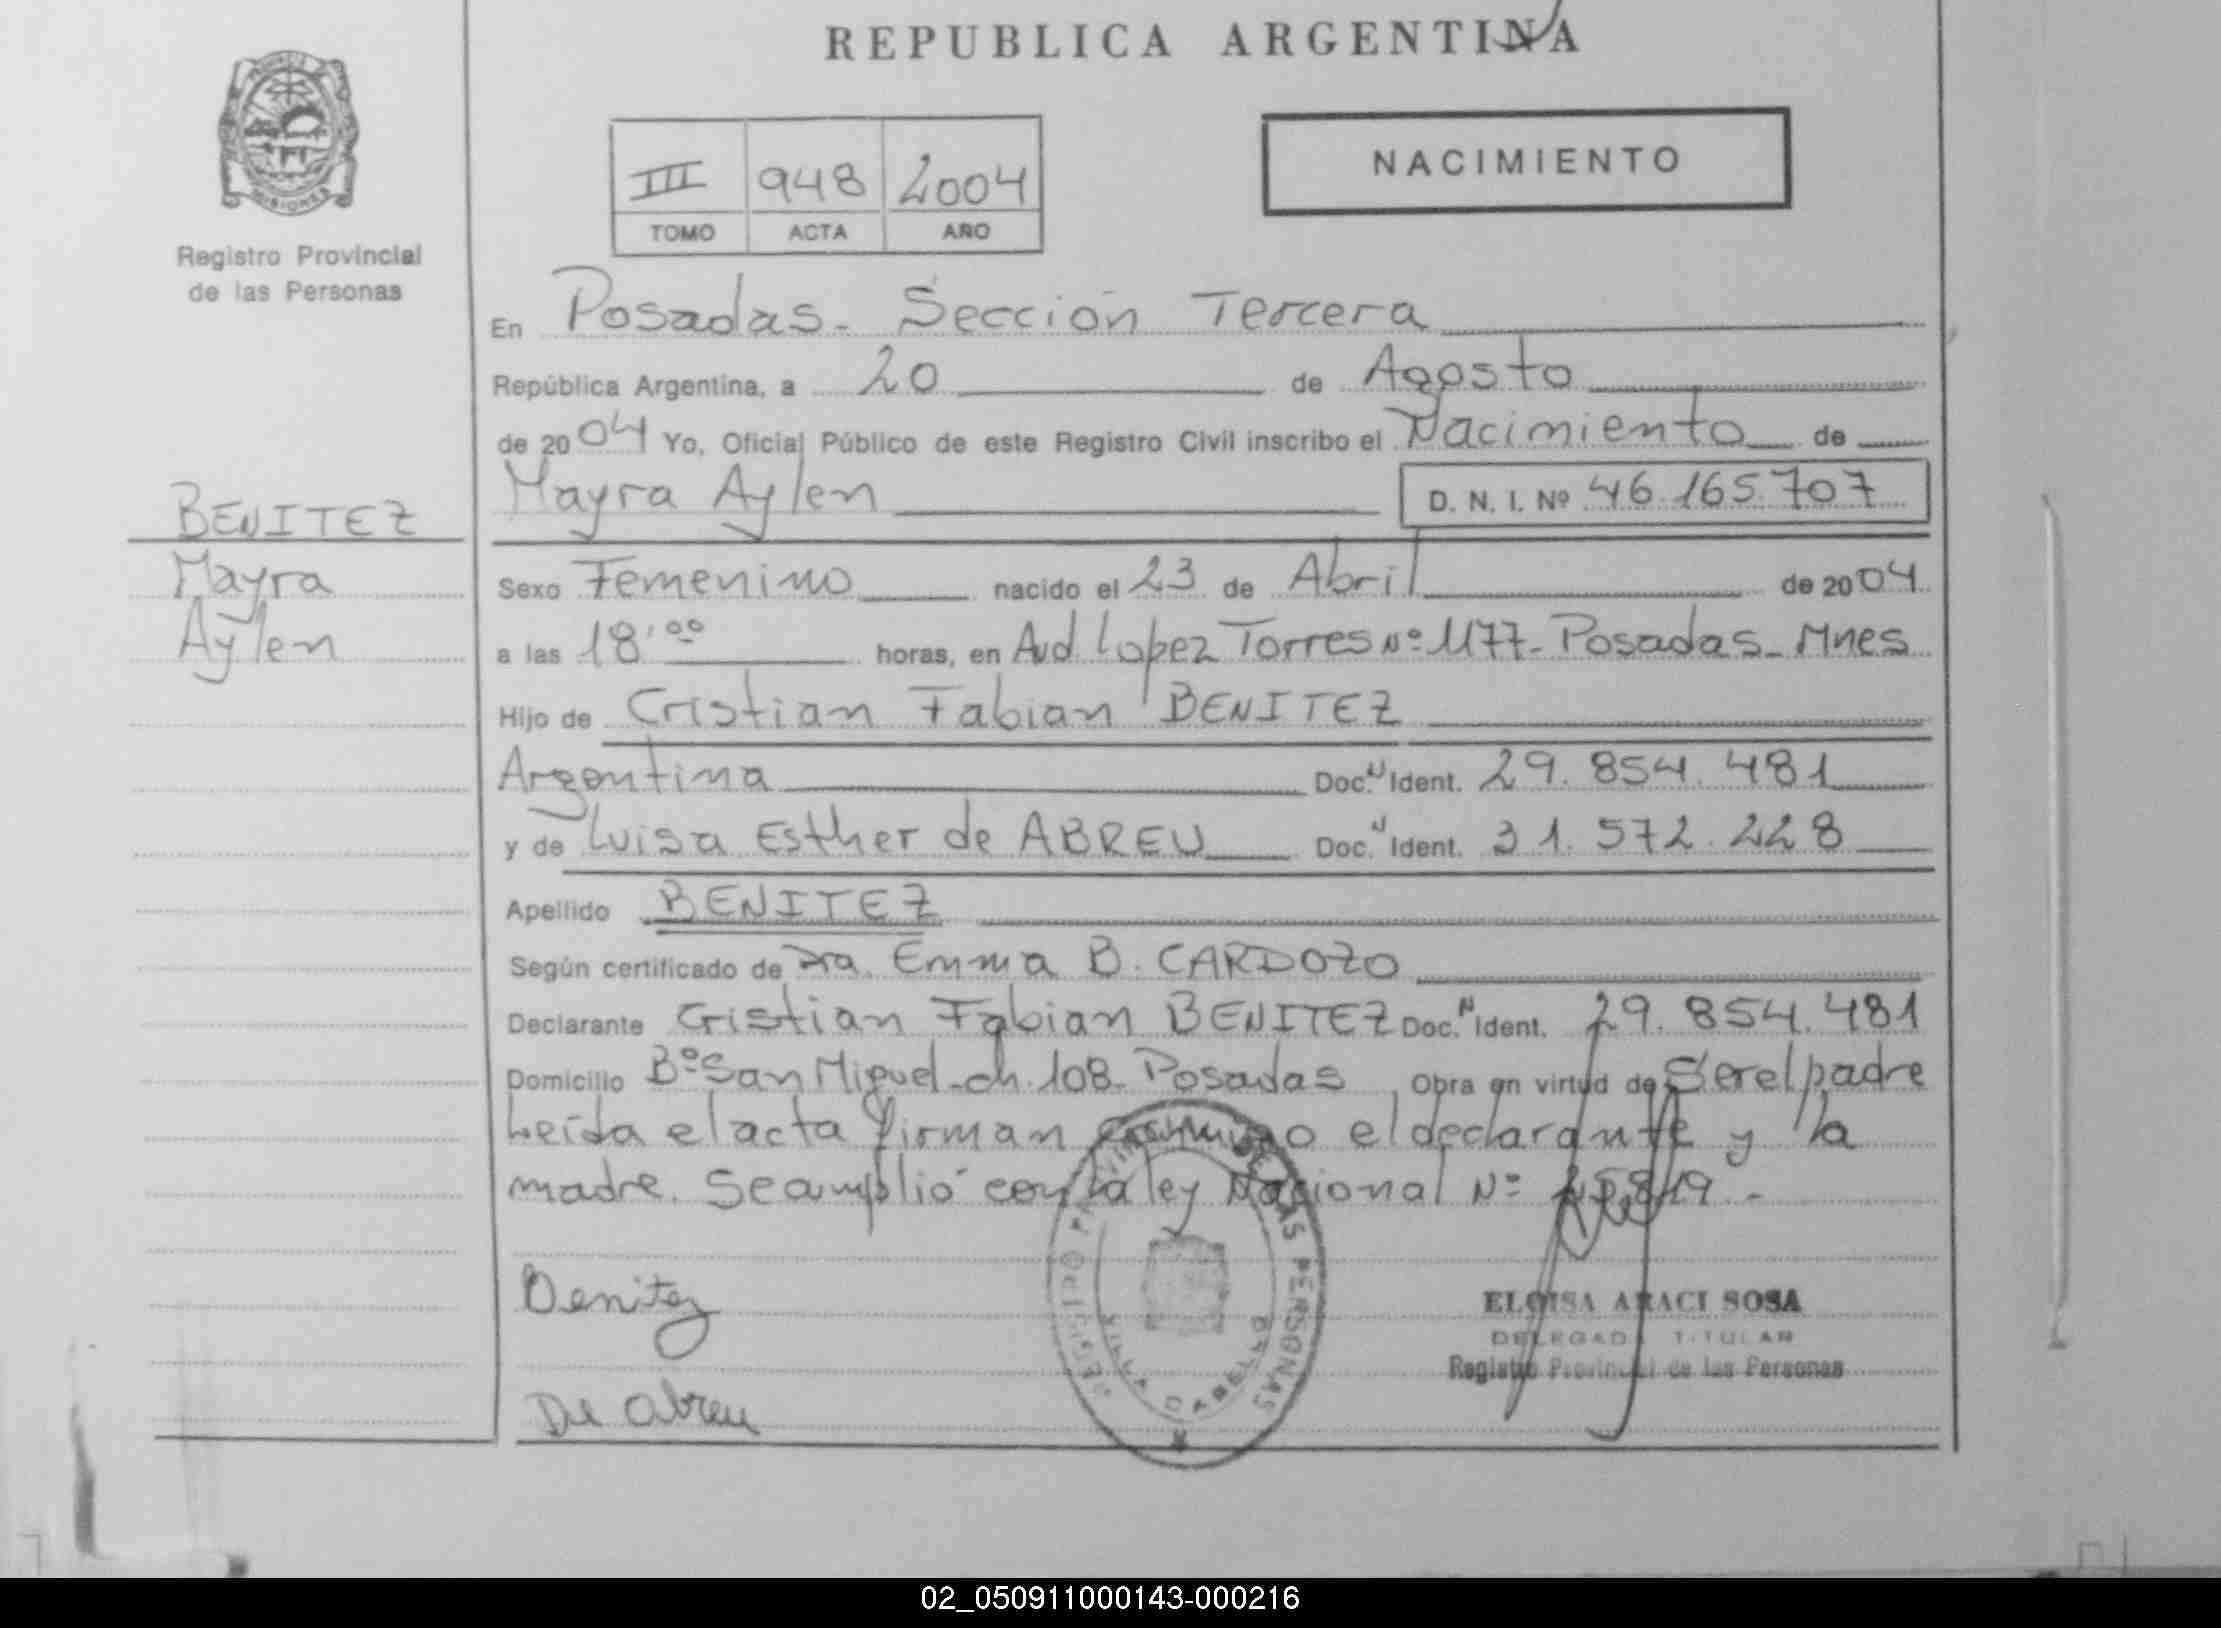 REPUBLICA ARGENTINA
PROVINCIA DE MISIONES
Registro Provincial
de las Personas
III 948 2004
TOMO ACTA AÑO
NACIMIENTO
En Posadas - Sección Tercera
República Argentina, a 20 de Agosto
de 2004 Yo, Oficial Público de este Registro Civil inscribo el Nacimiento de
BENITEZ
Mayra
Aylen
Mayra Aylen D. N. I. Nº 46.165.707
Sexo Femenino nacido el 23 de Abril de 2004
a las 18,00 horas, en Avd. Lopez Torres Nº 1177 - Posadas - Mnes
Hijo de Cristian Fabian BENITEZ
Argentina Doc. N Ident. 29.854.481
y de Luisa Esther de ABREU Doc. N Ident. 31.572.228
Apellido BENITEZ
Según certificado de Dra. Emma B. CARDOZO
Declarante Cristian Fabian BENITEZ Doc. N Ident. 29.854.481
Domicilio Bº San Miguel - ch. 108 - Posadas Obra en virtud de Ser el padre
Leída el acta firman conmigo el declarante y la
madre. Se amplió con la ley Nacional Nº 25819.-
REGISTRO PROVINCIAL DE LAS PERSONAS
VILLA CABELLO
Benitez
ELOISA ARACI SOSA
DELEGADA TITULAR
Registro Provincial de las Personas
De Abreu
02_050911000143-000216